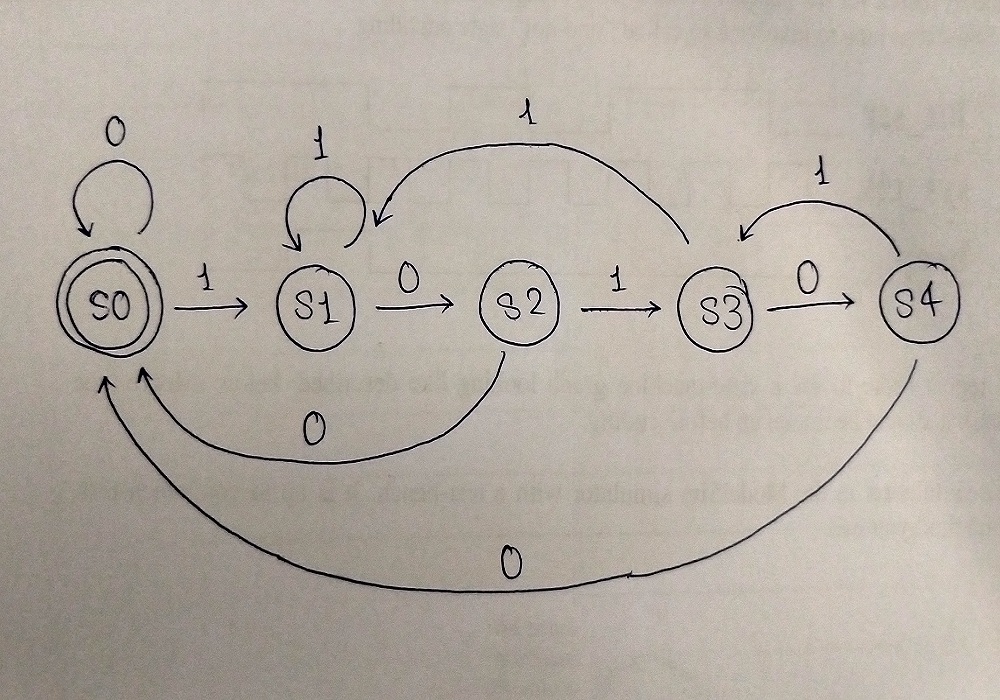 0
1
1
1
S0
1
S1
0
S2
1
S3
0
S4
0
0